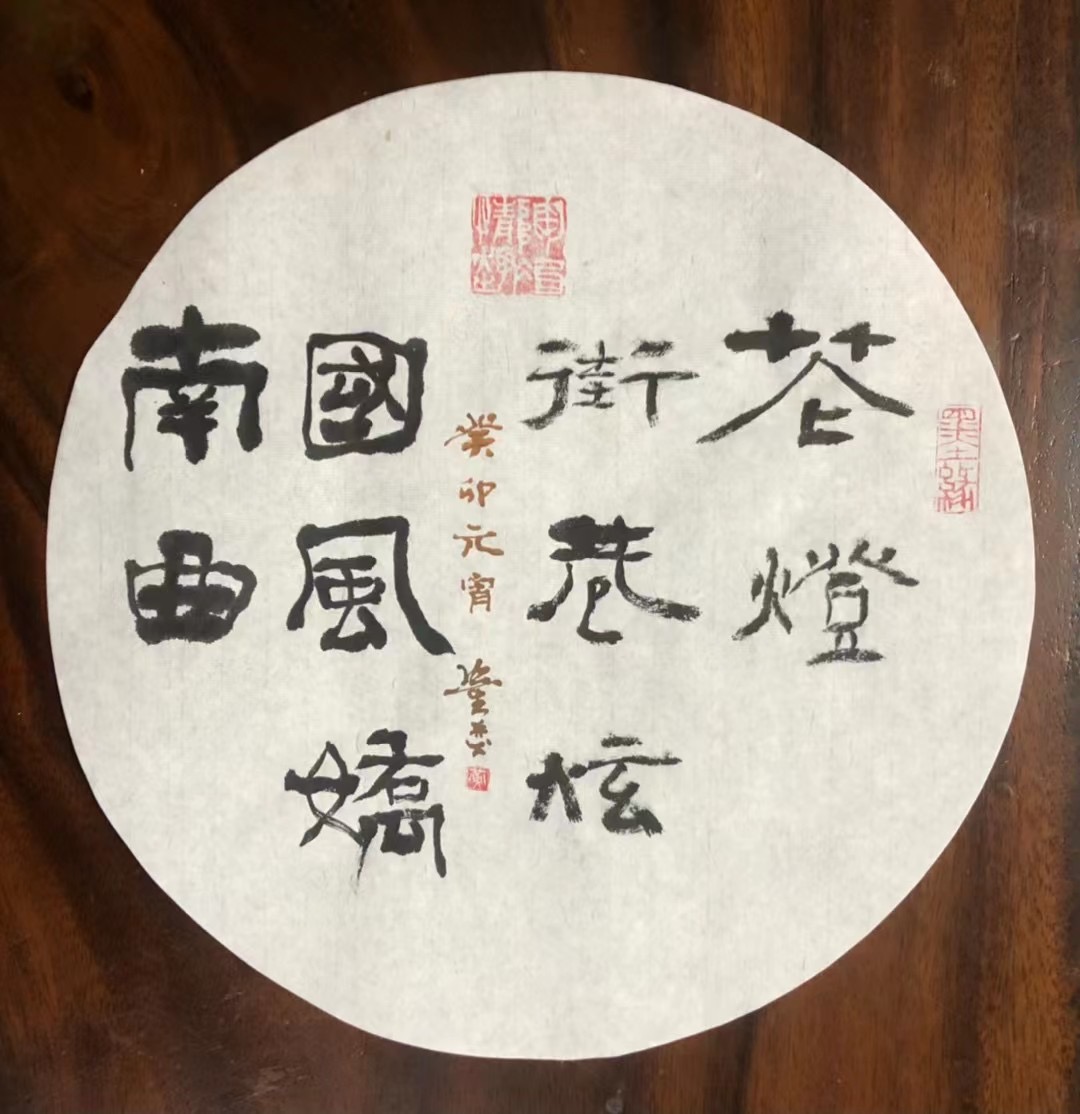 花燈
街巷炫
南曲
國風嬌
癸卯元宵